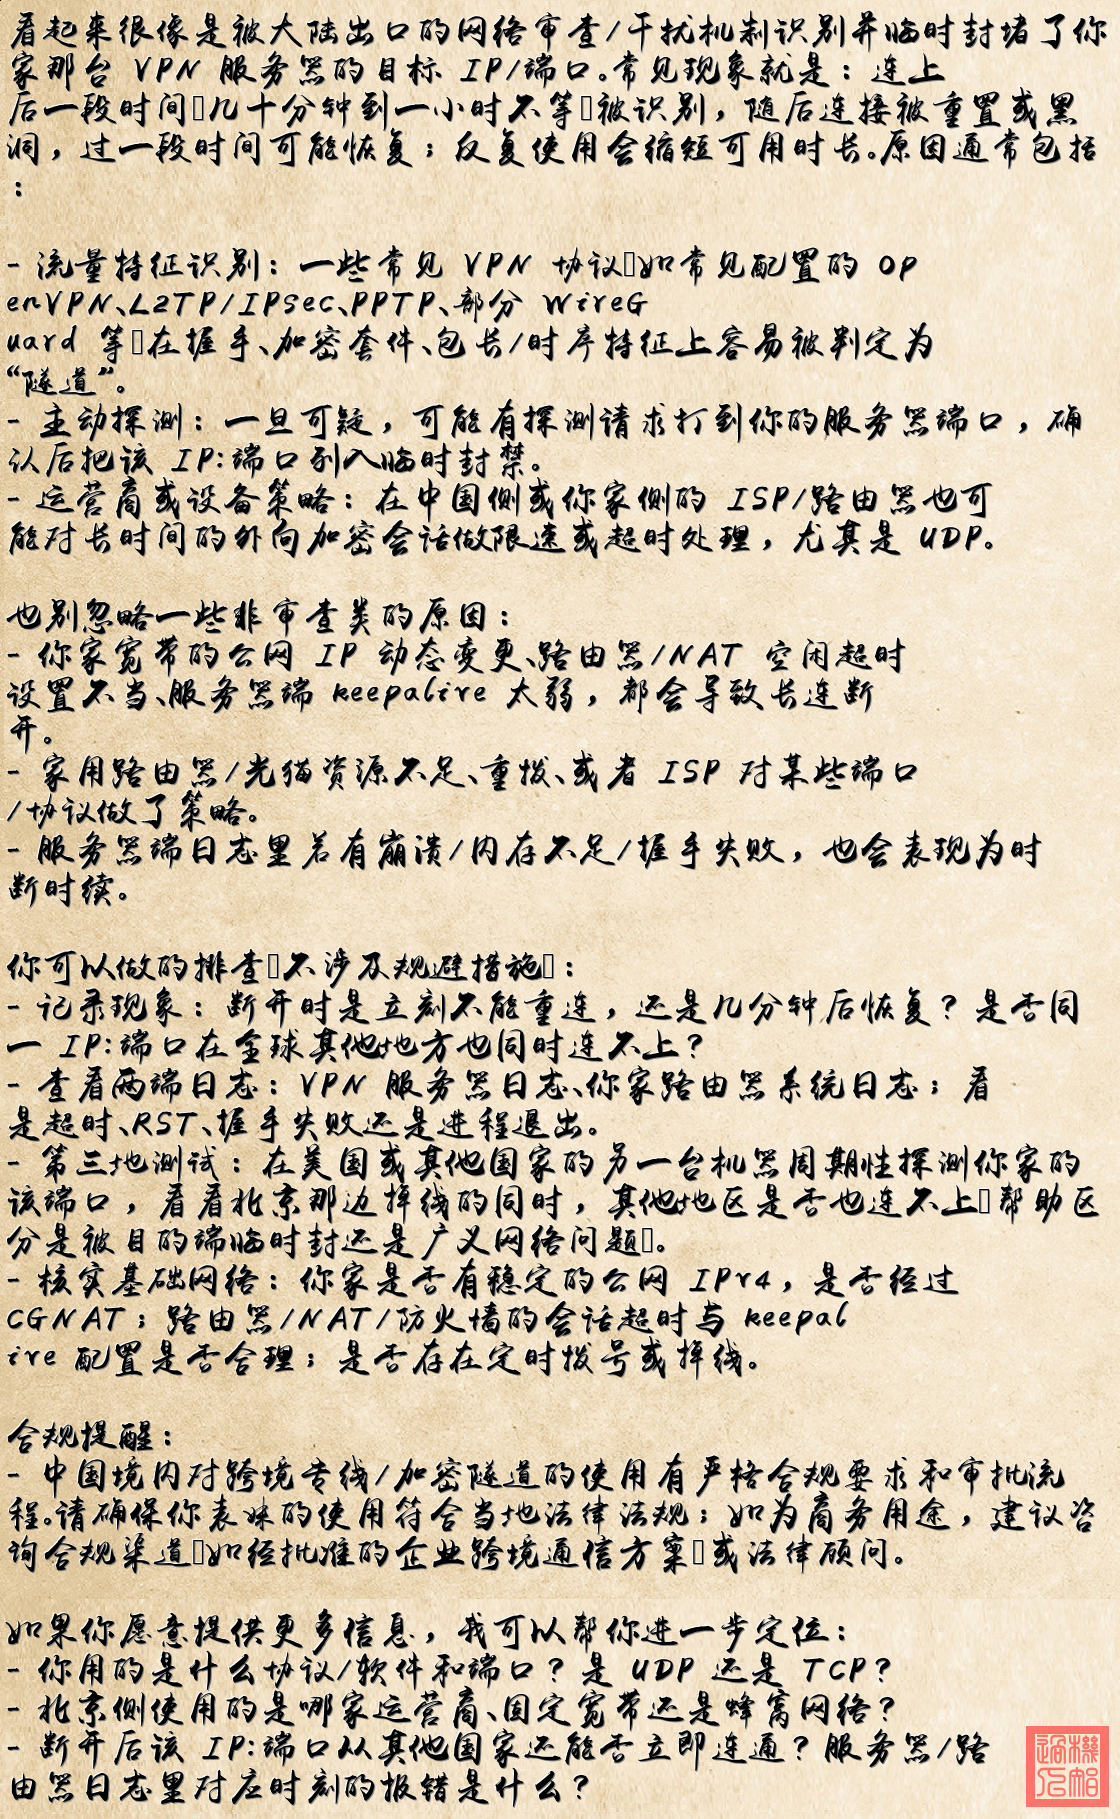 看起来很像是被大陆出口的网络审查/干扰机制识别并临时封堵了你
家那台 VPN 服务器的目标 IP/端口。常见现象就是：连上
后一段时间▯几十分钟到一小时不等▯被识别，随后连接被重置或黑
洞，过一段时间可能恢复；反复使用会缩短可用时长。原因通常包括
：
- 流量特征识别：一些常见 VPN 协议▯如常见配置的 Op
enVPN、L2TP/IPSec、PPTP、部分 WireG
uard 等▯在握手、加密套件、包长/时序特征上容易被判定为
“隧道”。
- 主动探测：一旦可疑，可能有探测请求打到你的服务器端口，确
认后把该 IP:端口列入临时封禁。
- 运营商或设备策略：在中国侧或你家侧的 ISP/路由器也可
能对长时间的外向加密会话做限速或超时处理，尤其是 UDP。
也别忽略一些非审查类的原因：
- 你家宽带的公网 IP 动态变更、路由器/NAT 空闲超时
设置不当、服务器端 keepalive 太弱，都会导致长连断
开。
- 家用路由器/光猫资源不足、重拨、或者 ISP 对某些端口
/协议做了策略。
- 服务器端日志里若有崩溃/内存不足/握手失败，也会表现为时
断时续。
你可以做的排查▯不涉及规避措施▯：
- 记录现象：断开时是立刻不能重连，还是几分钟后恢复？是否同
一 IP:端口在全球其他地方也同时连不上？
- 查看两端日志：VPN 服务器日志、你家路由器系统日志；看
是超时、RST、握手失败还是进程退出。
- 第三地测试：在美国或其他国家的另一台机器周期性探测你家的
该端口，看看北京那边掉线的同时，其他地区是否也连不上▯帮助区
分是被目的端临时封还是广义网络问题▯。
- 核实基础网络：你家是否有稳定的公网 IPv4，是否经过
CGNAT；路由器/NAT/防火墙的会话超时与 keepal
ive 配置是否合理；是否存在定时拨号或掉线。
合规提醒：
- 中国境内对跨境专线/加密隧道的使用有严格合规要求和审批流
程。请确保你表妹的使用符合当地法律法规；如为商务用途，建议咨
询合规渠道▯如经批准的企业跨境通信方案▯或法律顾问。
如果你愿意提供更多信息，我可以帮你进一步定位：
- 你用的是什么协议/软件和端口？是 UDP 还是 TCP？
- 北京侧使用的是哪家运营商、固定宽带还是蜂窝网络？
- 断开后该 IP:端口从其他国家还能否立即连通？服务器/路
由器日志里对应时刻的报错是什么？